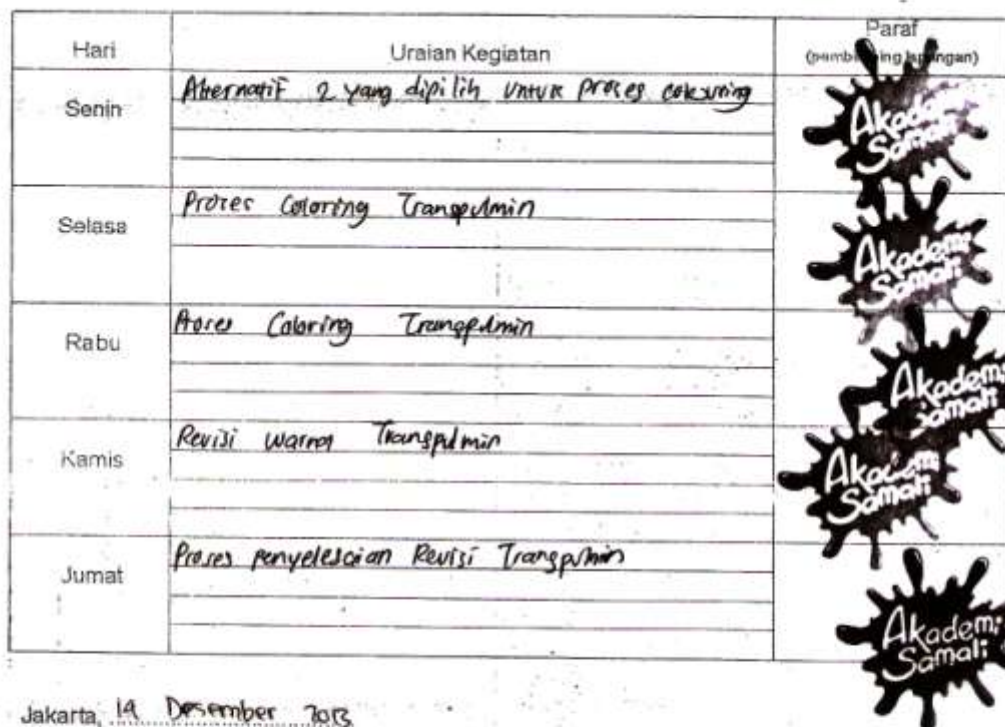 Hari Uraian Kegiatan Paraf
(pembimbing lapangan)
Senin Alternatif 2 yang dipilih untuk proses coloring
Akademi
Samali
Selasa Proses Coloring Transpulmin
Akademi
Samali
Rabu Proses Coloring Transpulmin
Akademi
Samali
Kamis Revisi warna Transpulmin
Akademi
Samali
Jumat Proses penyelesaian Revisi Transpulmin
Akademi
Samali
Jakarta, Desember